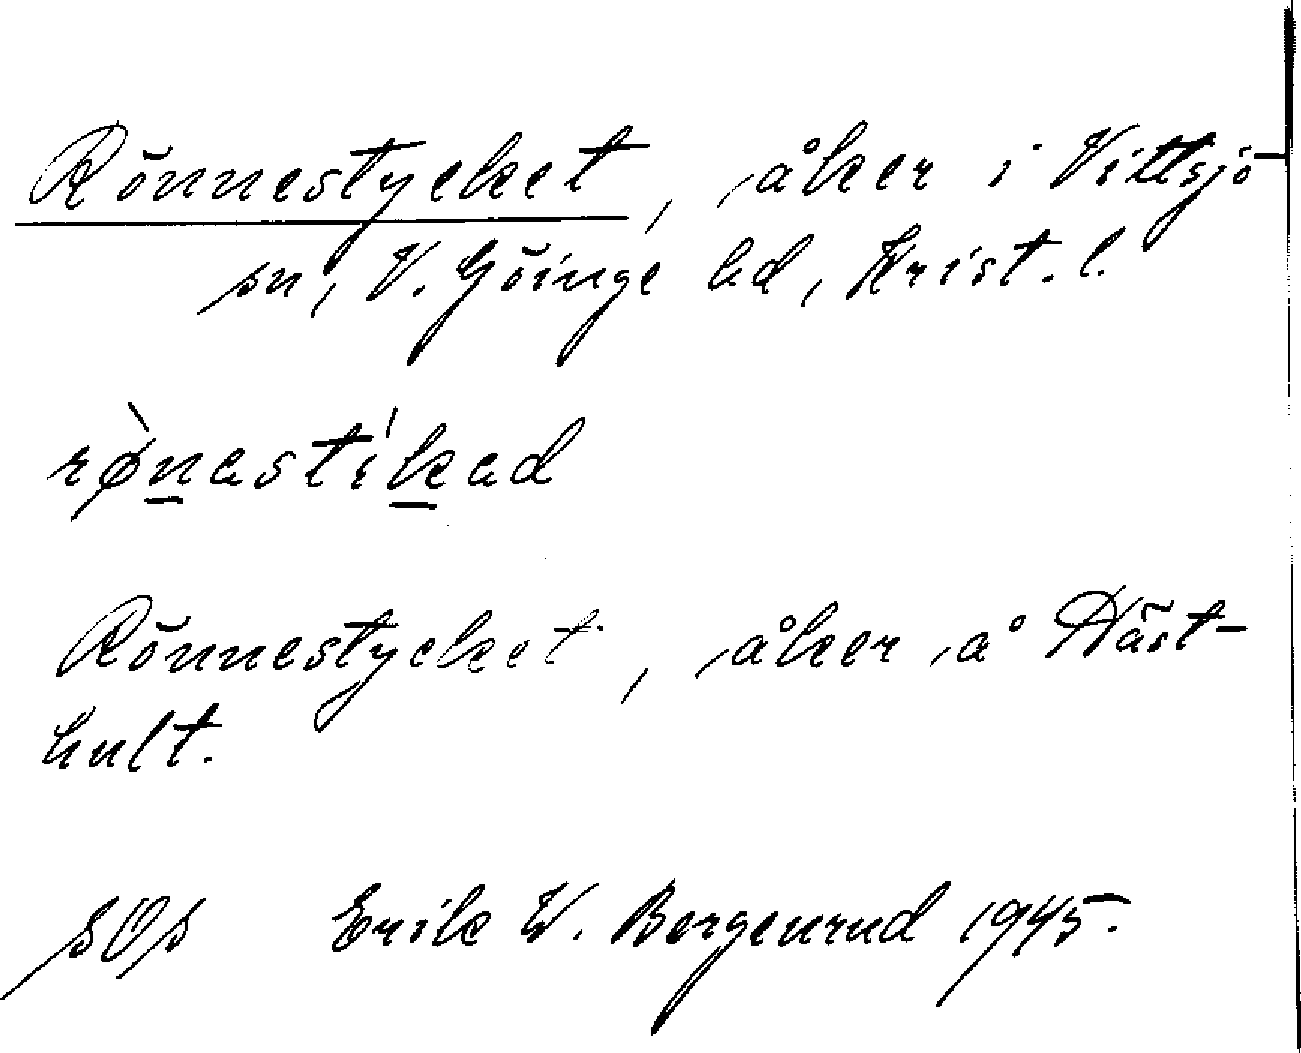 Rönnestycket, åker i Vittsjö
sn, V. Göinge hd, Krist. l.
rø̀nastíkad
Rönnestycket, åker å Häst-
hult.
sOs Erik W. Bergenrud 1945.